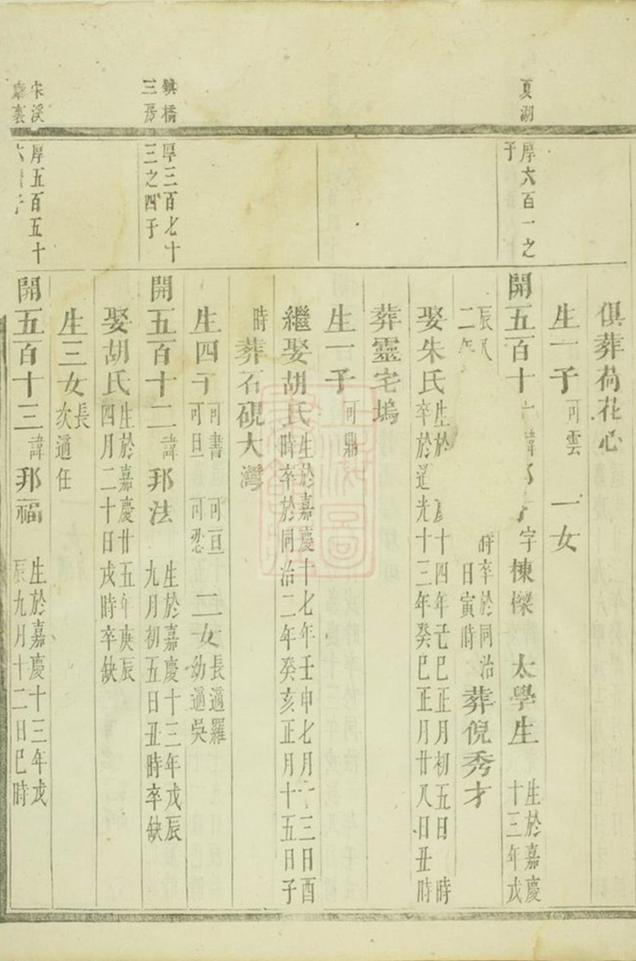 夏湖
厚六百一之子
俱葬荷花心
生一子可雲 一女
開五百十 諱 字棟樑 太學生 生於嘉慶十三年戊
辰八 時卒於同治二年 日寅時 葬倪秀才
娶朱氏 生於 十四年己巳正月初五日 時卒於道光十三年癸巳正月廿八日丑時
葬靈宅塢
生一子可鼎
繼娶胡氏 生於嘉慶十七年壬申七月 三日酉時卒於同治二年癸亥正月十五日子
時葬石硯大灣
鎮橋三房
厚三百七十三之四子
生四子 可書 可旦 可亘 二女 長適羅 幼適吳
開五百十二諱邦法 生於嘉慶十三年戊辰九月初五日丑時卒缺
娶胡氏 生於嘉慶廿五年庚辰四月二十日戌時卒缺
生三女 長次適任
宋溪
厚五百五十
開五百十三諱邦福 生於嘉慶十三年戊辰九月十二日巳時